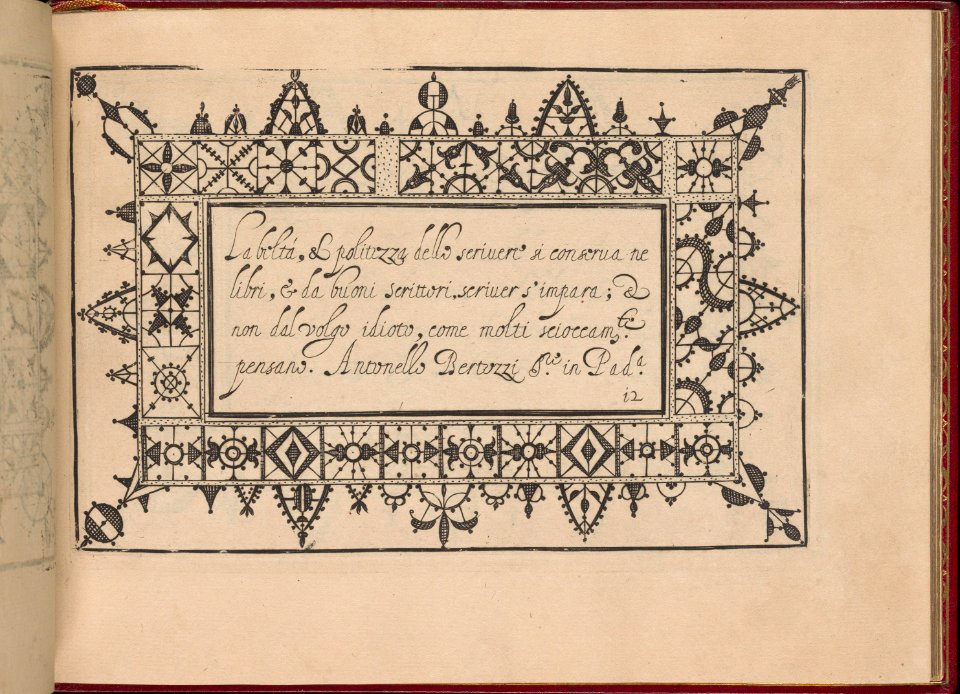 La beltá, & politezza dello scriuere si conserua ne
libri, & da buoni scrittori, scriuer s'impara; &
non dal volgo idioto, come molti scioccamte.
pensano. Antonello Bertozzi Sre in Pada.
12